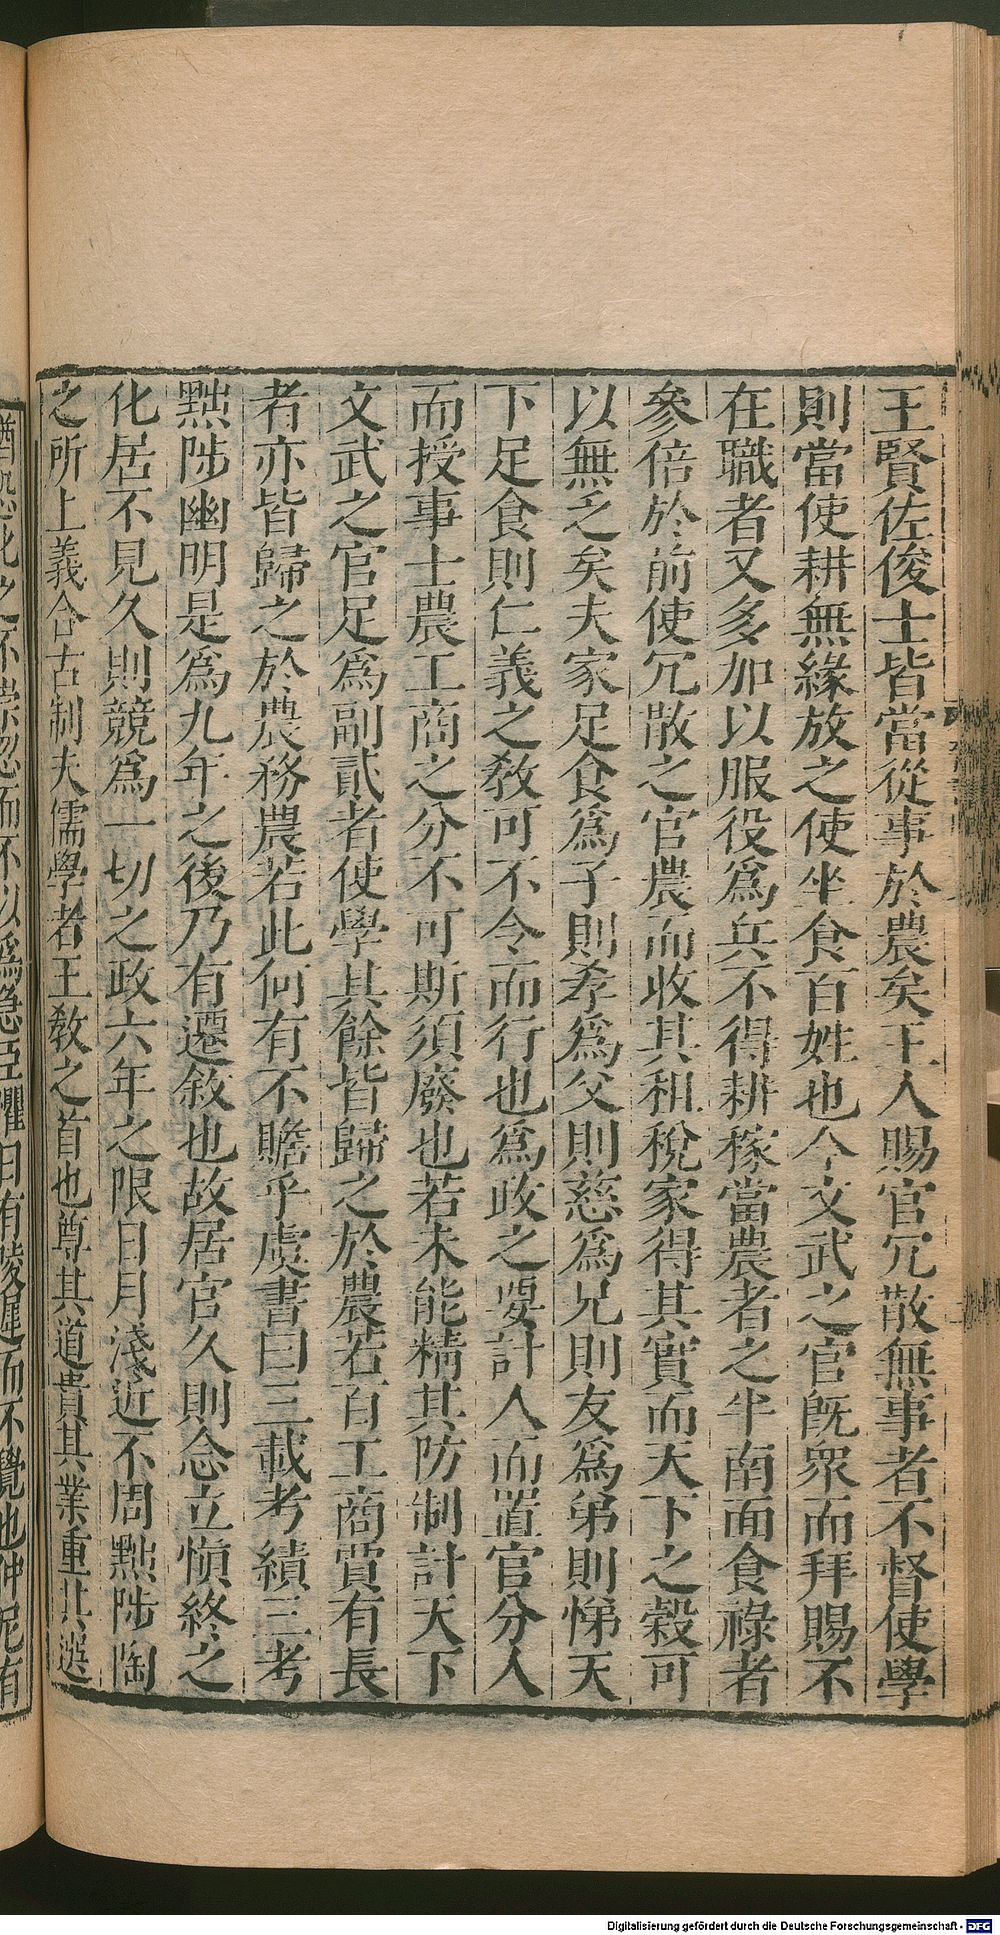 王賢佐俊士皆當從事於農矣王人賜官冗散無事者不督使學
則當使耕無緣放之使坐食百姓也今文武之官旣衆而拜賜不
在職者又多加以服役爲兵不得耕稼當農者之半南面食祿者
參倍於前使冗散之官農而收其租稅家得其實而天下之穀可
以無乏矣夫家足食爲子則孝爲父則慈爲兄則友爲弟則悌天
下足食則仁義之敎可不令而行也爲政之要計人而置官分人
而授事士農工商之分不可斯須廢也若未能精其防制計天下
文武之官足爲副貳者使學其餘皆歸之於農若百工商賈有長
者亦皆歸之於農務農若此何有不贍乎虞書曰三載考績三考
黜陟幽明是爲九年之後乃有遷敘也故居官久則念立愼終之
化居不見久則競爲一切之政六年之限日月淺近不周黜陟陶
之所上義合古制夫儒學者王敎之首也尊其道貴其業重其選
猶恐化之不崇忽而不以爲急臣懼日有陵遲而不覺也仲尼有
Digitalisierung gefördert durch die Deutsche Forschungsgemeinschaft - DFG